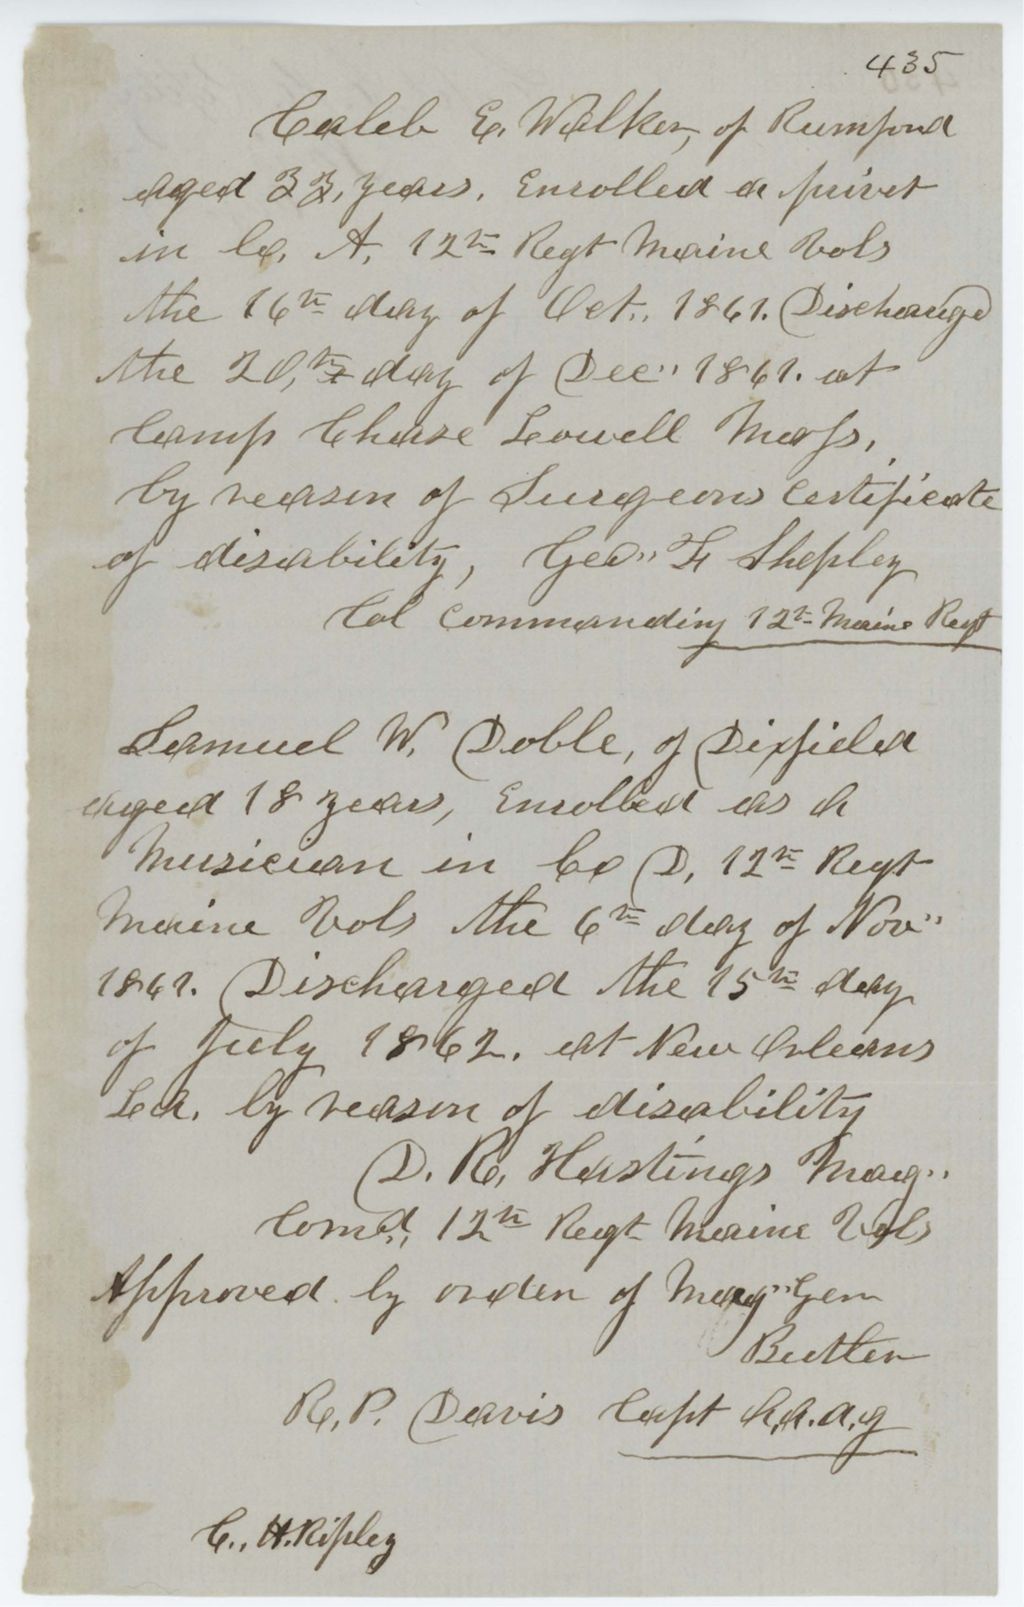 435
Caleb E. Walker, of Rumford
aged 33, years, Enrolled a privet
in Co. A, 12th Regt Maine Vols
the 16th day of Oct,, 1861. Discharge
the 20,th day of Dec,, 1861. at
Camp Chase Lowell Mass,
by reason of Surgeons Certificate
of disability, Geo,, F Shepley
Col Commanding 12th Maine Regt
Samuel W. Doble, of Dixfield
aged 18 years, Enrolled as a
Musician in Co D, 12th Regt
Maine Vols the 6th day of Nov,,
1861. Discharged the 15th day
of July 1862. at New Orleans
La. by reason of disability
D. R, Hastings Mag,,
Comd,, 12th Regt Maine Vols
Approved by order of Mag,, Gen
Butler
R. P. Davis Capt A,A.A,g
C., H. Ripley